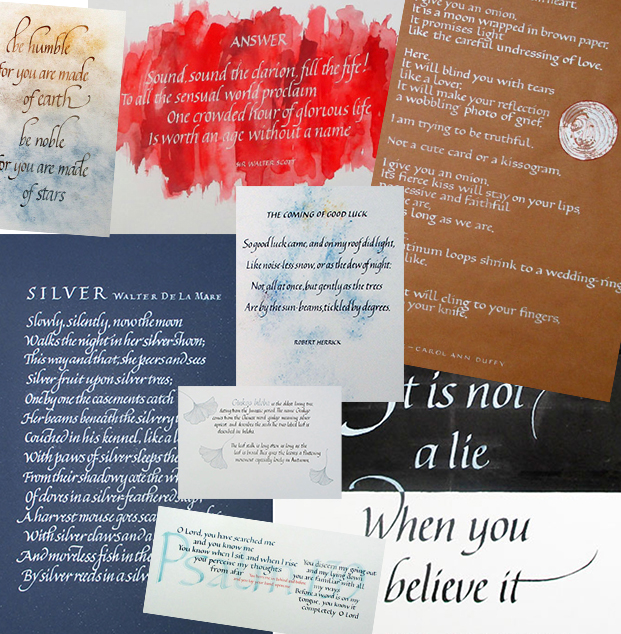 be humble
for you are made
of earth
be noble
for you are made
of stars
ANSWER
Sound, sound the clarion, fill the fife!
To all the sensual world proclaim
One crowded hour of glorious life
Is worth an age without a name
SIR WALTER SCOTT
give you an onion,
It is a moon wrapped in brown paper,
It promises light
like the careful undressing of love.
Here.
It will blind you with tears
like a lover.
It will make your reflection
a wobbling photo of grief.
I am trying to be truthful.
Not a cute card or a kissogram.
I give you an onion.
Its fierce kiss will stay on your lips,
possessive and faithful
we are,
as long as we are.
platinum loops shrink to a wedding-ring
like.
it will cling to your fingers,
your knife.
—CAROL ANN DUFFY
THE COMING OF GOOD LUCK
So good luck came, and on my roof did light,
Like noise-less snow, or as the dew of night:
Not all at once, but gently as the trees
Are by the sun-beams, tickled by degrees.
ROBERT HERRICK
SILVER WALTER DE LA MARE
Slowly, silently, now the moon
Walks the night in her silver shoon;
This way and that, she peers and sees
Silver fruit upon silver trees;
One by one the casements catch
Her beams beneath the silvery
Couched in his kennel, like a
With paws of silver sleeps the
From their shadowy cote the wh
Of doves in a silver-feathered
A harvest mouse goes sca
With silver claws and a
And moveless fish in the
By silver reeds in a silv
Ginkgo biloba is the oldest living tree
dating from the Jurassic period. The name Ginkgo
comes from the Chinese word yinkgo meaning silver
apricot and describes the seeds the two lobed leaf is
described in biloba.
The leaf stalk is long often as long as the
leaf is broad this gives the leaves a fluttering
movement especially lovely in Autumn.
It is not
a lie
When you
believe it
Psalm 139
O Lord, you have searched me
and you know me
You know when I sit and when I rise
you perceive my thoughts
from afar
You discern my going out
and my lying down
you are familiar with all
my ways
Before a word is on my
tongue, you know it
completely O Lord